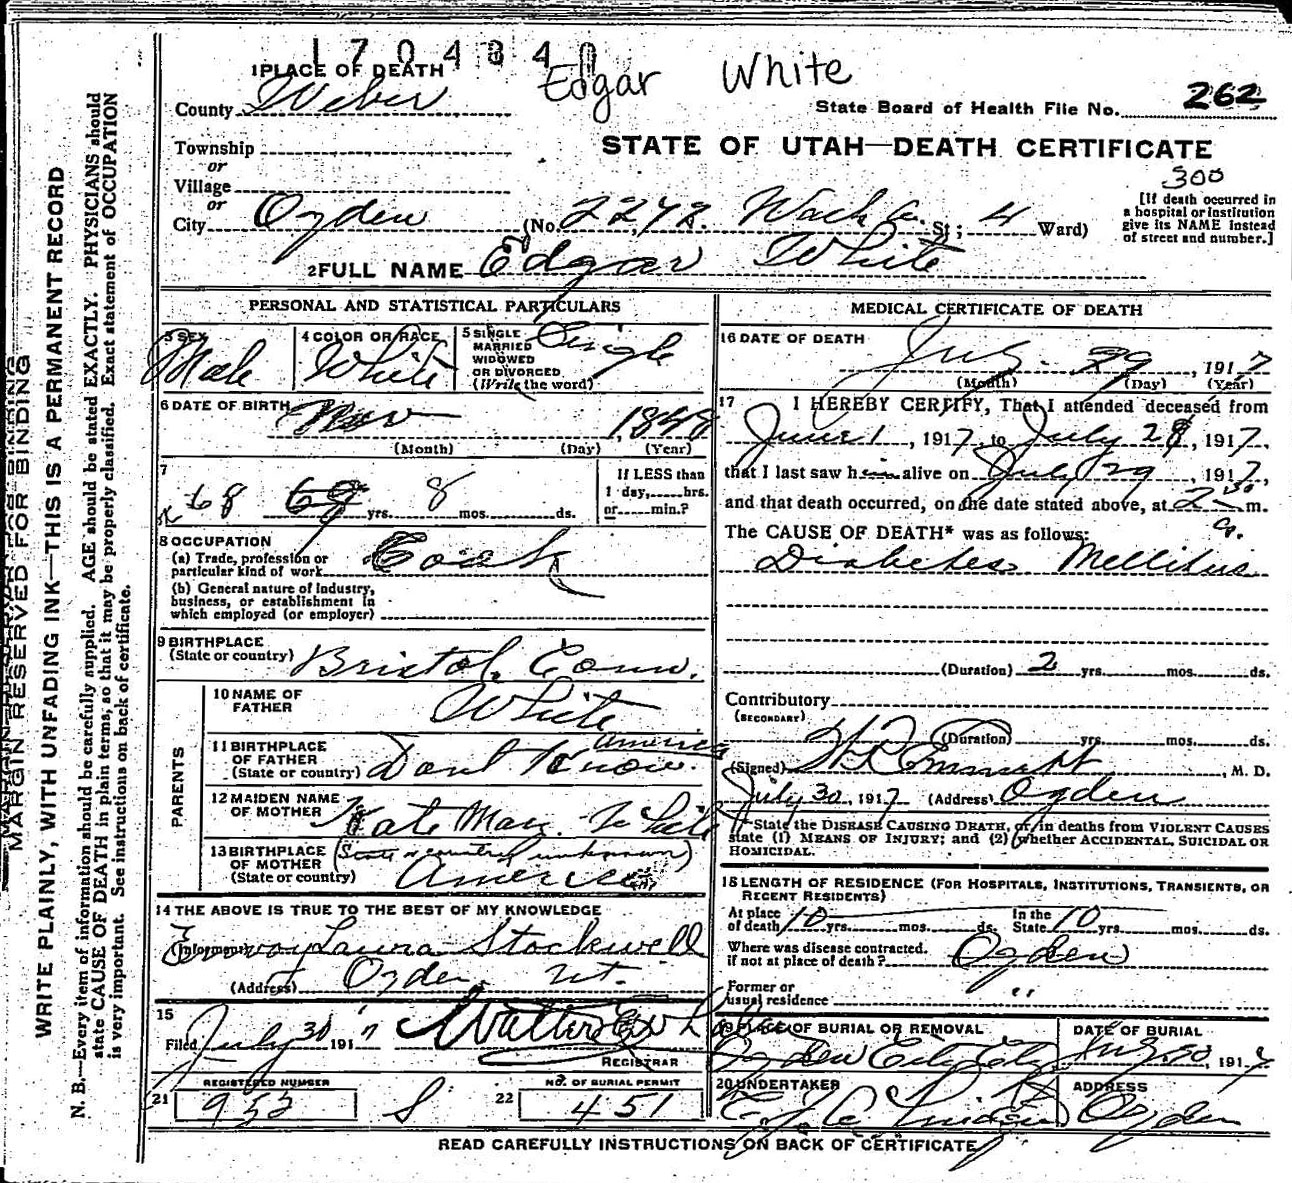 1704340
Edgar White
1 PLACE OF DEATH
County Weber
State Board of Health File No. 262
Township
STATE OF UTAH—DEATH CERTIFICATE
or
Village
300
or
City Ogden (No. 2278 St; 4 Ward)
[If death occurred in a hospital or institution give its NAME instead of street and number.]
2 FULL NAME Edgar White
PERSONAL AND STATISTICAL PARTICULARS
3 SEX Male
4 COLOR OR RACE White
5 SINGLE MARRIED WIDOWED OR DIVORCED (Write the word) Single
6 DATE OF BIRTH Nov 1848
(Month) (Day) (Year)
7
68 69 yrs. 8 mos. ds.
If LESS than 1 day, hrs. or min.?
8 OCCUPATION
(a) Trade, profession or particular kind of work Cook
(b) General nature of Industry, business, or establishment in which employed (or employer)
9 BIRTHPLACE
(State or country) Bristol, Conn.
PARENTS
10 NAME OF FATHER White
11 BIRTHPLACE OF FATHER (State or country) Dont Know. America
12 MAIDEN NAME OF MOTHER Kate May White
13 BIRTHPLACE OF MOTHER (State or country) (State or country unknown) America
14 THE ABOVE IS TRUE TO THE BEST OF MY KNOWLEDGE
(Informant) Laura Stockwell
(Address) Ogden, Ut.
15
Filed July 30 1917 Walter
REGISTRAR
REGISTERED NUMBER
21 953 S
NO. OF BURIAL PERMIT
22 451
MEDICAL CERTIFICATE OF DEATH
16 DATE OF DEATH
July 29, 1917
(Month) (Day) (Year)
17 I HEREBY CERTIFY, That I attended deceased from
June 1, 1917, to July 28, 1917,
that I last saw him alive on July 29, 1917,
and that death occurred, on the date stated above, at 2 30 a. m.
The CAUSE OF DEATH* was as follows:
Diabetes Mellitus
(Duration) 2 yrs. mos. ds.
Contributory
(SECONDARY)
(Duration) yrs. mos. ds.
(Signed) , M. D.
July 30, 1917 (Address) Ogden
*State the DISEASE CAUSING DEATH, or, in deaths from VIOLENT CAUSES state (1) MEANS OF INJURY; and (2) whether ACCIDENTAL, SUICIDAL OR HOMICIDAL.
18 LENGTH OF RESIDENCE (FOR HOSPITALS, INSTITUTIONS, TRANSIENTS, OR RECENT RESIDENTS)
At place of death 10 yrs. mos. ds. In the State 10 yrs. mos. ds.
Where was disease contracted, if not at place of death? Ogden
Former or usual residence "
19 PLACE OF BURIAL OR REMOVAL
Ogden City
DATE OF BURIAL
30, 1917
20 UNDERTAKER
ADDRESS
Ogden
READ CAREFULLY INSTRUCTIONS ON BACK OF CERTIFICATE
MARGIN RESERVED FOR BINDING
WRITE PLAINLY, WITH UNFADING INK—THIS IS A PERMANENT RECORD
N. B.—Every item of information should be carefully supplied. AGE should be stated EXACTLY. PHYSICIANS should
state CAUSE OF DEATH in plain terms, so that it may be properly classified. Exact statement of OCCUPATION
is very important. See instructions on back of certificate.